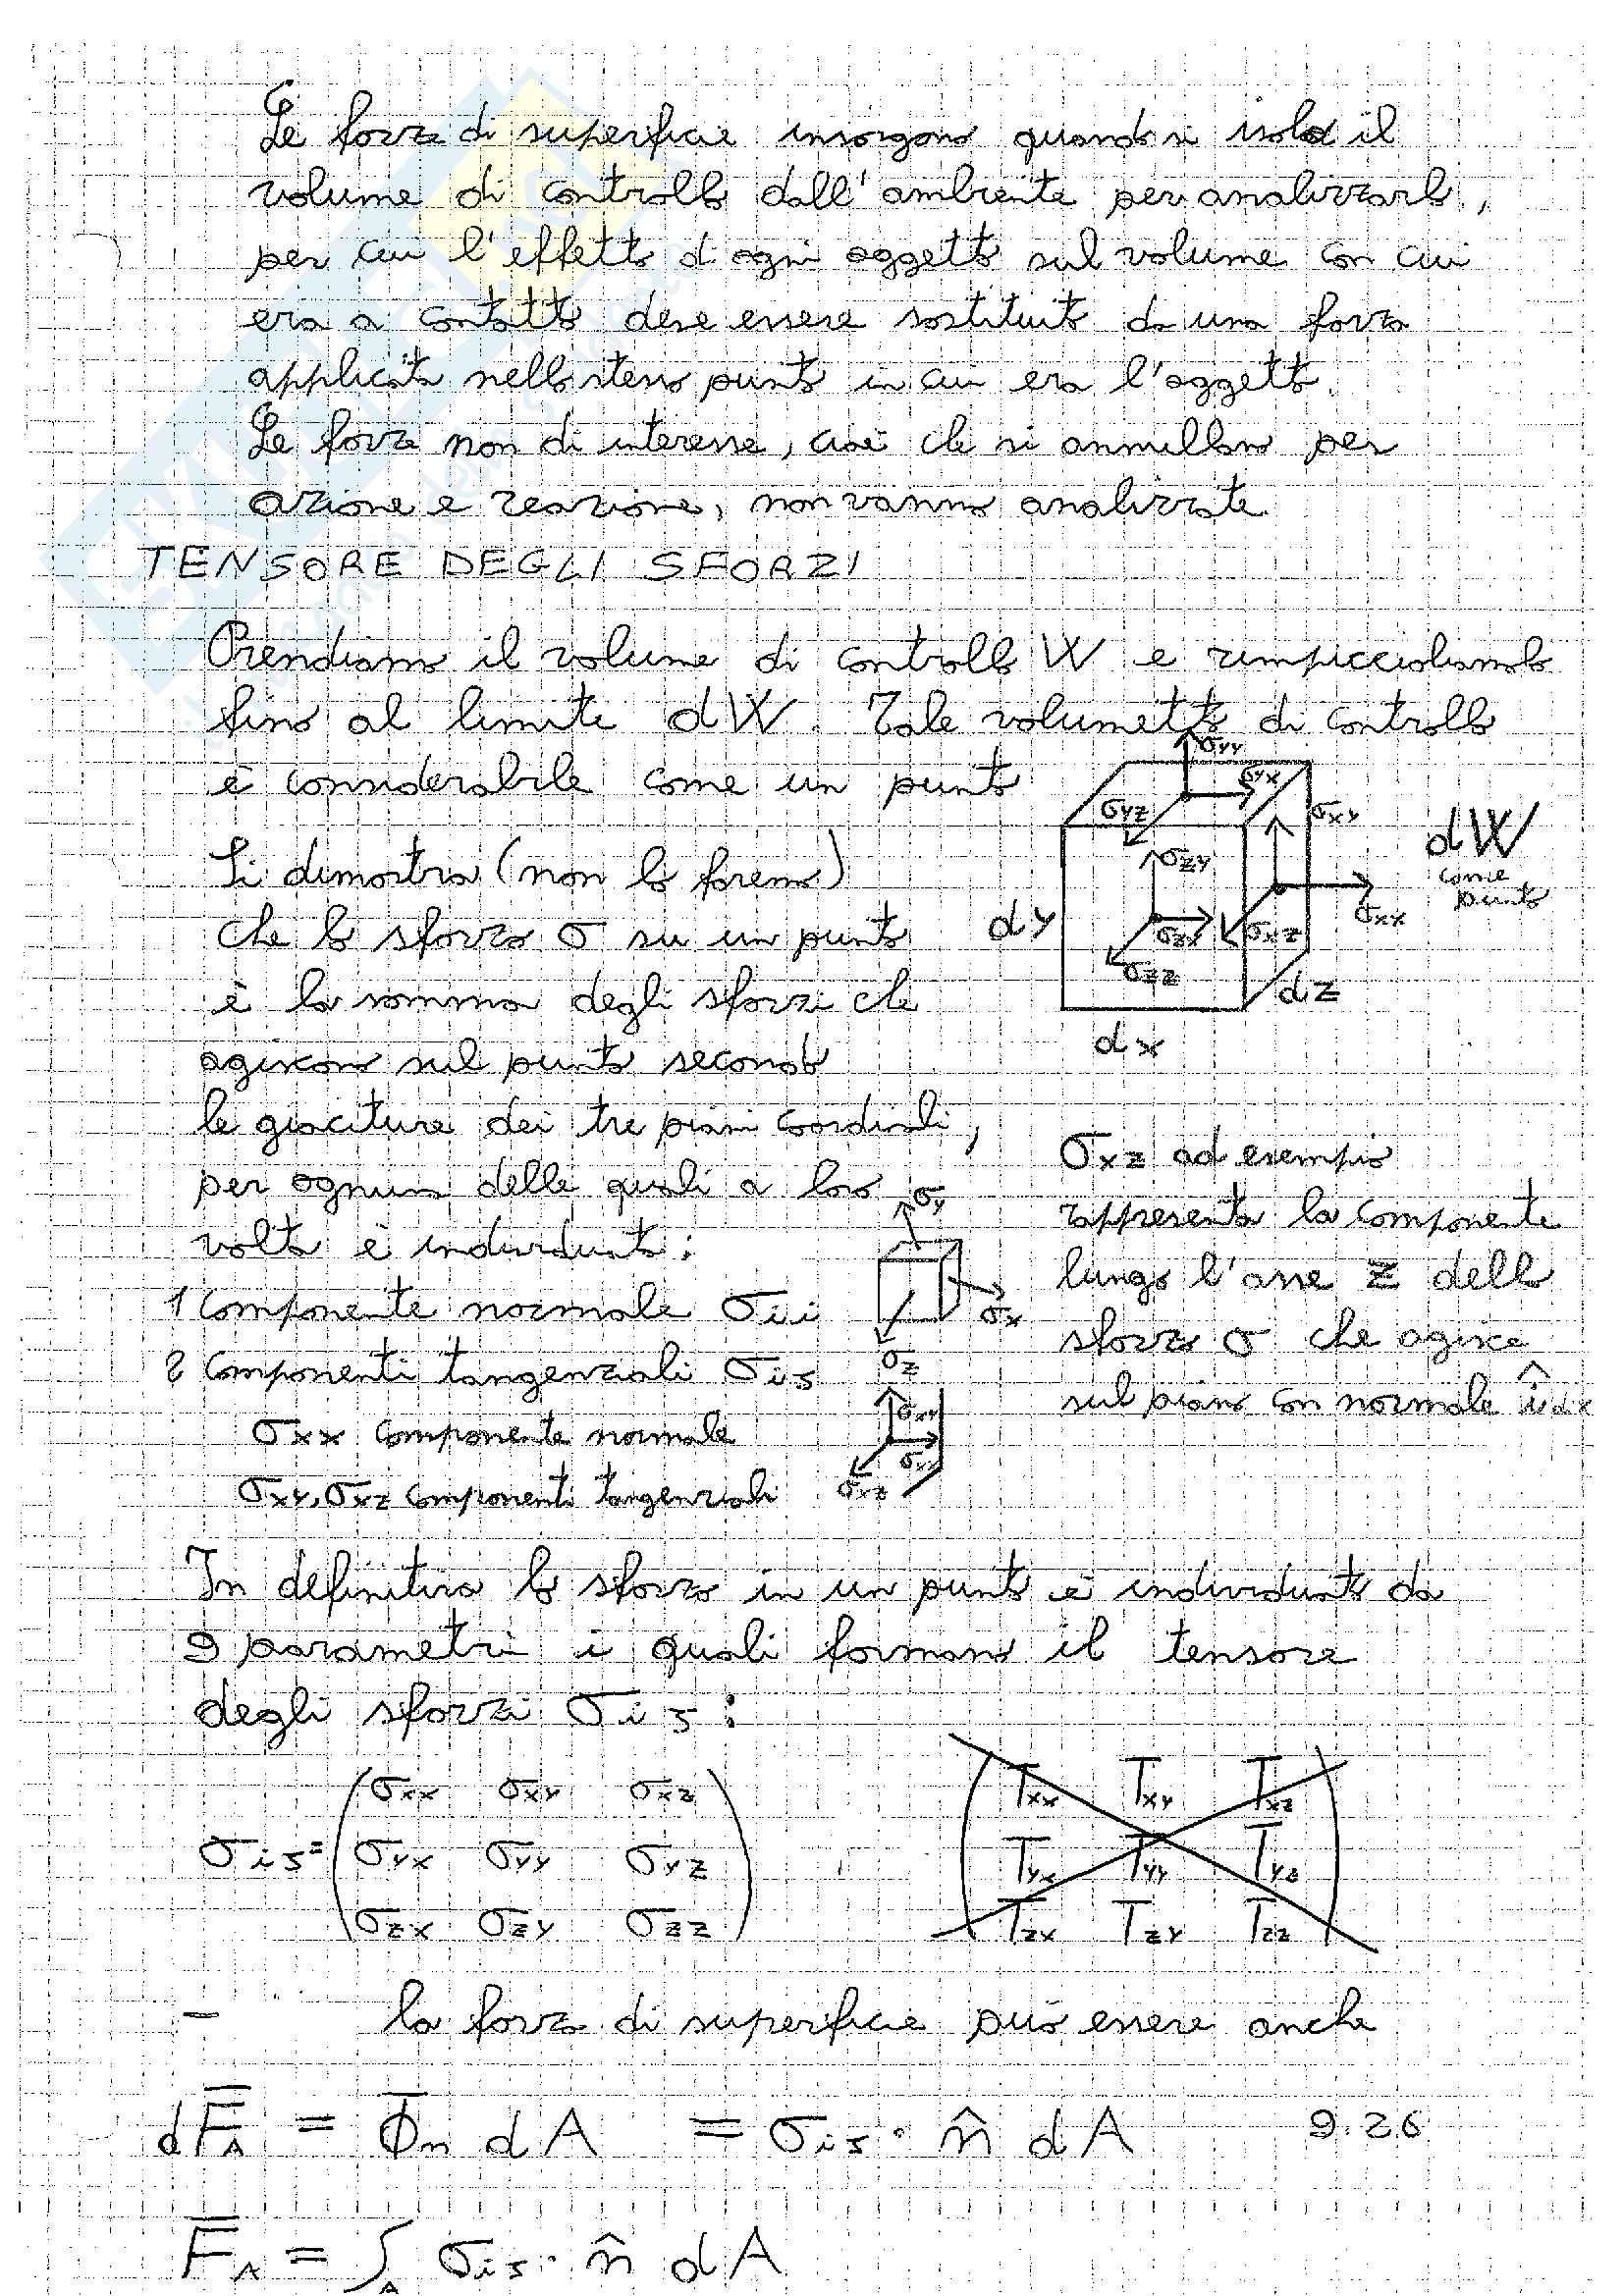 Le forze di superficie insorgono quando si isola il
volume di controllo dall'ambiente per analizzarlo,
per cui l'effetto di ogni oggetto sul volume con cui
era a contatto deve essere sostituito da una forza
applicata nello stesso punto in cui era l'oggetto.
Le forze non di interesse, cioè che si annullano per
azione e reazione, non vanno analizzate.
TENSORE DEGLI SFORZI
Prendiamo il volume di controllo W e rimpiccioliamolo
fino al limite dW. Tale volumetto di controllo
è considerabile come un punto
σyy
σyx
σyz
σxy
σzy
dW
come
punto
σxx
dy
σzx
σxz
σzz
dz
dx
Si dimostra (non lo faremo)
che lo sforzo σ su un punto
è la somma degli sforzi che
agiscono sul punto secondo
le giaciture dei tre piani coordinati,
per ognuna delle quali a loro
volta è individuato:
1 componente normale σii
2 componenti tangenziali σij
σxx componente normale
σxy, σxz componenti tangenziali
σy
σx
σz
σxy
σxx
σxz
σxz ad esempio
rappresenta la componente
lungo l'asse z dello
sforzo σ che agisce
sul piano con normale
In definitiva lo sforzo in un punto è individuato da
9 parametri i quali formano il tensore
degli sforzi σij:
σxx σxy σxz
σij = σyx σyy σyz
σzx σzy σzz
Txx Txy Txz
Tyx Tyy Tyz
Tzx Tzy Tzz
– la forza di superficie può essere anche
dF̄A = Φ̄n dA = σij · n̂ dA 9.26
F̄A = ∫A σij · n̂ dA